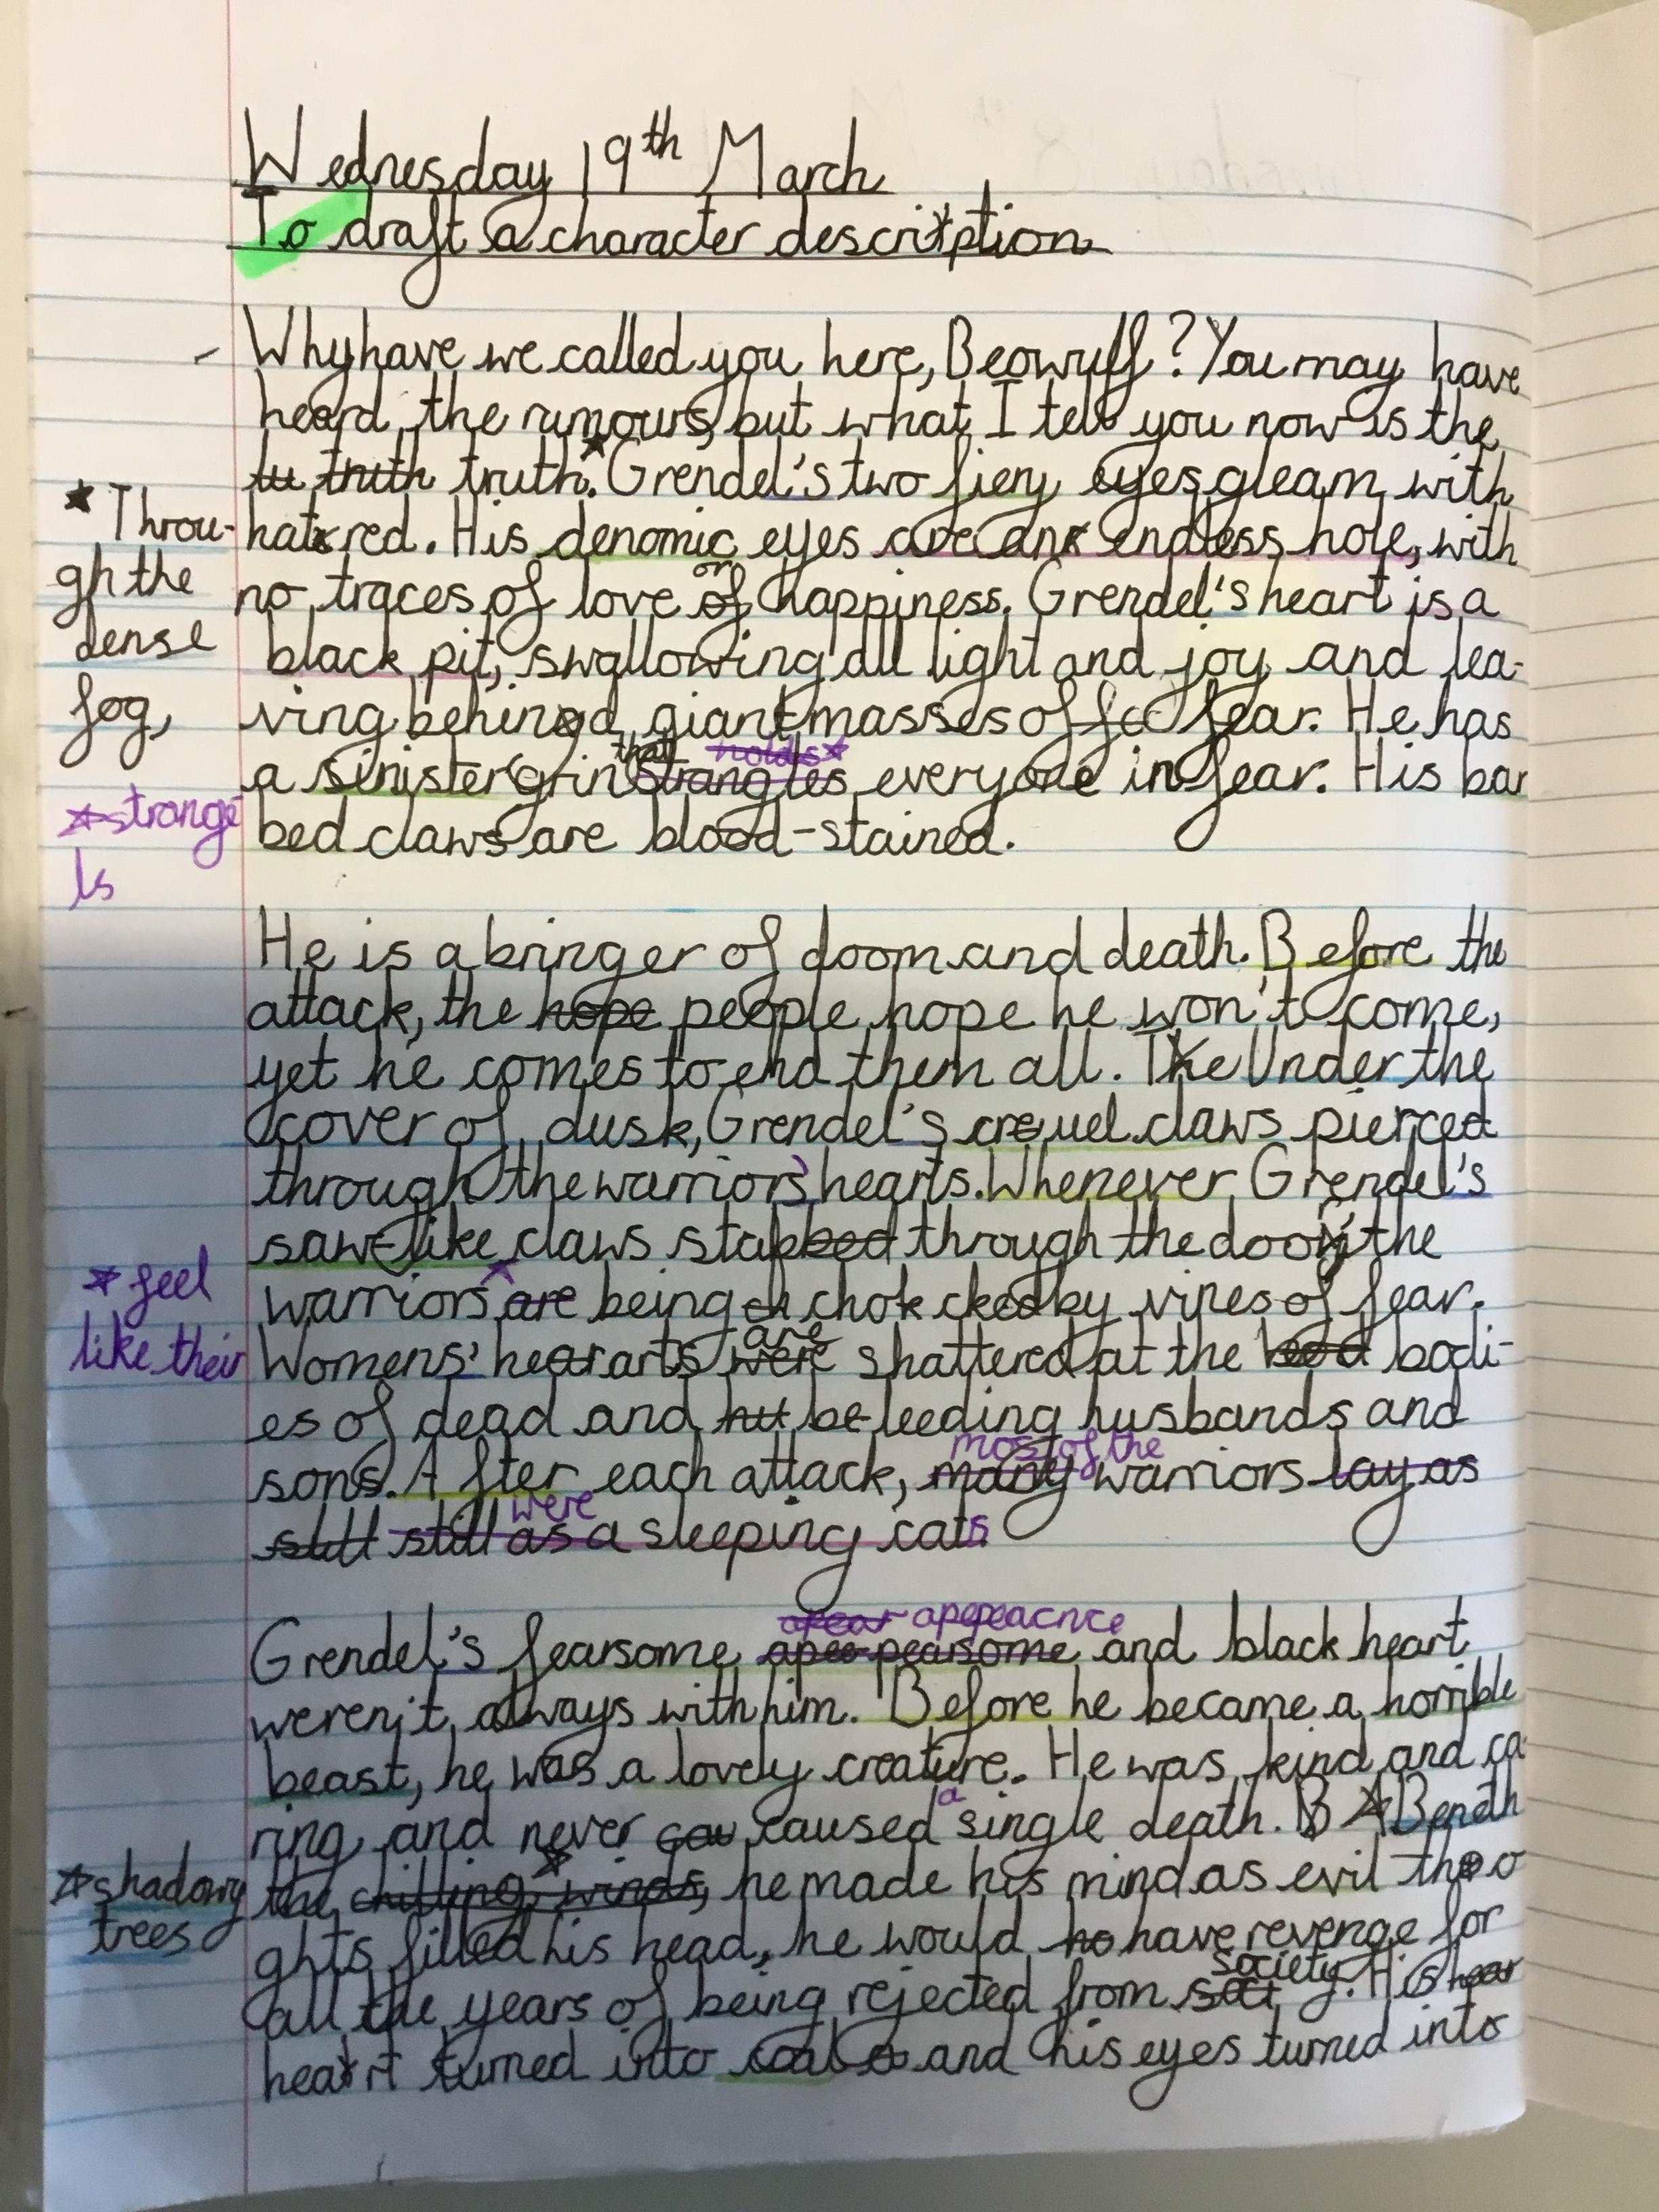 Wednesday 19th March
To draft a character description
Why have we called you here, Beowulf? You may have
heard the rumours, but what I tell you now is the
tu truth truth.* Grendel's two fiery eyes gleam with
* Throu-
gh the
dense
fog,
hatred. His denomic eyes are an endless hole, with
no traces of love of or happiness. Grendel's heart is a
black pit, swallowing all light and joy and lea-
ving behind giant masses of fe fear. He has
a sinister grin that strangles holds* everyone in fear. His bar
* strange
ls
bed claws are blood-stained.
He is a bringer of doom and death. Before the
attack, the hope people hope he won't come,
yet he comes to end them all. The Under the
cover of dusk, Grendel's creuel claws pierced
through the warriors' hearts. Whenever Grendel's
saw-like claws stabbed through the door, the
* feel
like their
warriors are being ch chok cked by vines of fear.
Womens' hearts were are shattered at the bod bodi-
es of dead and hu bleeding husbands and
sons. After each attack, many most of the warriors lay as
still still as were a sleeping cats
Grendel's fearsome apee pearsome apear apepeacnce and black heart
weren't always with him. Before he became a horrible
beast, he was a lovely creature. He was kind and ca
ring and never cau caused a single death. B A Beneath
* shadowy
trees
the chilling winds,* he made his mind as evil tho
ghts filled his head, he would ho have revenge for
all the years of being rejected from soci society. His hear
heart turned into coal and his eyes turned into